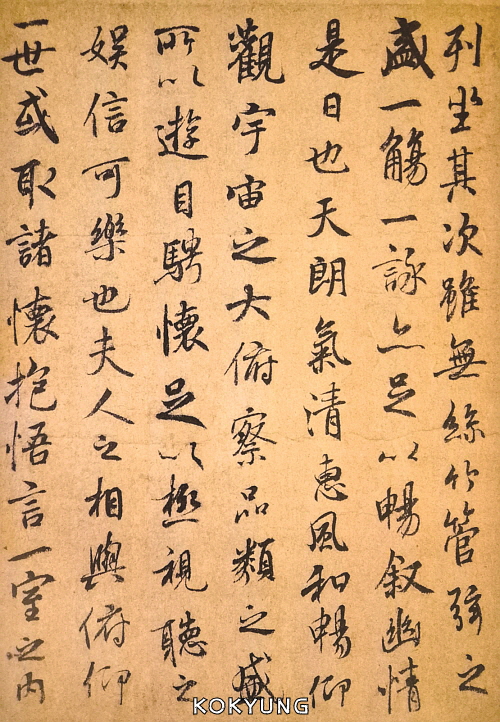 列坐其次雖無絲竹管弦之
盛一觴一詠亦足以暢叙幽情
是日也天朗氣清惠風和暢仰
觀宇宙之大俯察品類之盛
所以遊目騁懷足以極視聽之
娛信可樂也夫人之相與俯仰
一世或取諸懷抱悟言一室之內
KOKYUNG